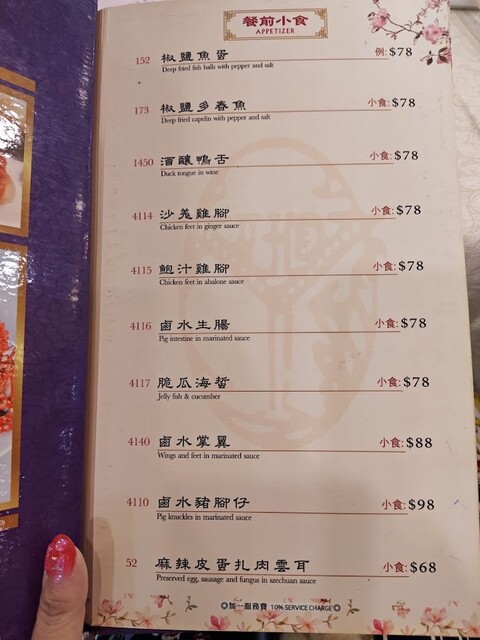 餐前小食
APPETIZER
152 椒鹽魚蛋 例:$78
Deep fried fish balls with pepper and salt
173 椒鹽多春魚 小食:$78
Deep fried capelin with pepper and salt
1450 酒釀鴨舌 小食:$78
Duck tongue in wine
4114 沙羗雞腳 小食:$78
Chicken feet in ginger sauce
4115 鮑汁雞腳 小食:$78
Chicken feet in abalone sauce
4116 鹵水生腸 小食:$78
Pig intestine in marinated sauce
4117 脆瓜海蜇 小食:$78
Jelly fish & cucumber
4140 鹵水掌翼 小食:$88
Wings and feet in marinated sauce
4110 鹵水豬腳仔 小食:$98
Pig knuckles in marinated sauce
52 麻辣皮蛋扎肉雲耳 小食:$68
Preserved egg, sausage and fungus in szechuan sauce
加一服務費 10% SERVICE CHARGE